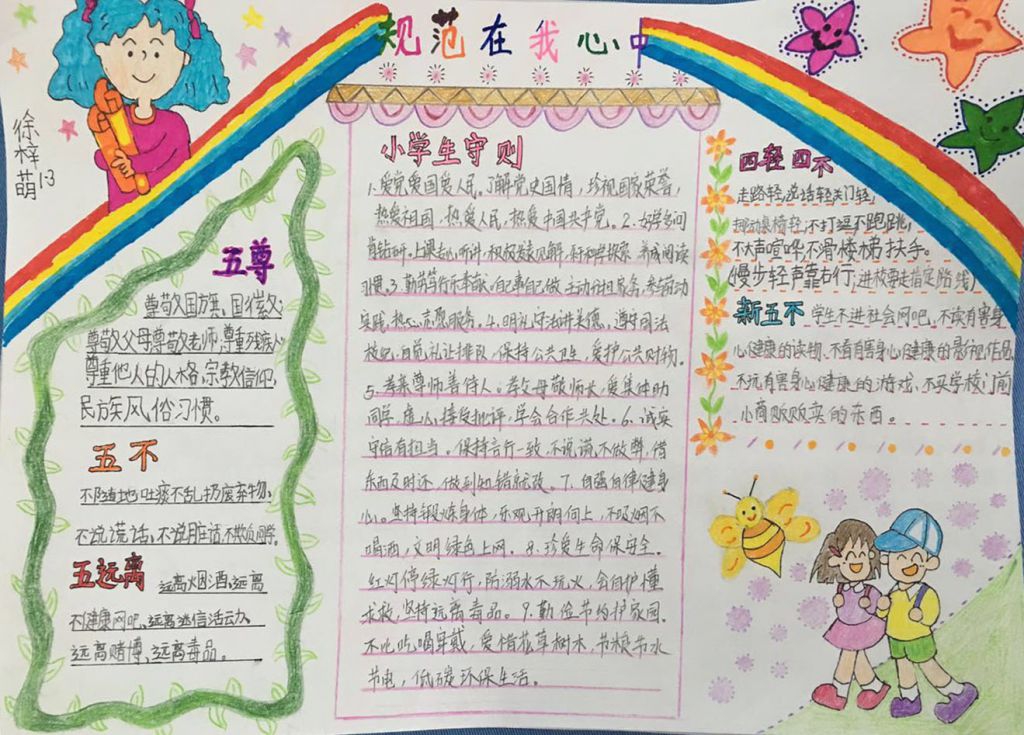 规范在我心中
徐梓萌
13
五尊
尊敬国旗、国徽
尊敬父母尊敬老师,尊重残疾人
尊重他人的人格,宗教信仰,
民族风俗习惯。
五不
不随地吐痰不乱扔废弃物、
不说谎话、不说脏话、不欺负同学。
五远离
远离烟酒、远离
不健康网吧、远离迷信活动、
远离赌博、远离毒品。
小学生守则
1.爱党爱国爱人民。了解党史国情,珍视国家荣誉,
热爱祖国,热爱人民,热爱中国共产党。2.好学多问
肯钻研。上课专心听讲,积极发表见解,乐于科学探索,养成阅读
习惯。3.勤劳笃行乐奉献。自己事自己做,主动分担家务,参与劳动
实践,热心志愿服务。4.明礼守法讲美德。遵守国法
校纪,自觉礼让排队,保持公共卫生,爱护公共财物。
5.孝亲尊师善待人。孝父母敬师长,爱集体助
同学,虚心接受批评,学会合作共处。6.诚实
守信有担当。保持言行一致,不说谎不做弊,借
东西及时还,做到知错就改。7.自强自律健身
心。坚持锻炼身体,乐观开朗向上,不吸烟不
喝酒,文明绿色上网。8.珍爱生命保安全。
红灯停绿灯行,防溺水不玩火,会自护懂
求救,坚持远离毒品。9.勤俭节约护家园。
不比吃喝穿戴,爱惜花草树木,节粮节水
节电,低碳环保生活。
四轻四不
走路轻,说话轻,关门轻,
挪动桌椅轻;不打逗不跑跳,
不大声喧哗,不滑楼梯扶手。
(慢步轻声靠右行,进校要走指定路线)
新五不 学生不进社会网吧、不读有害身
心健康的读物、不看有害身心健康的影视作品
不玩有害身心健康的游戏、不买学校门前
小商贩贩卖的东西。